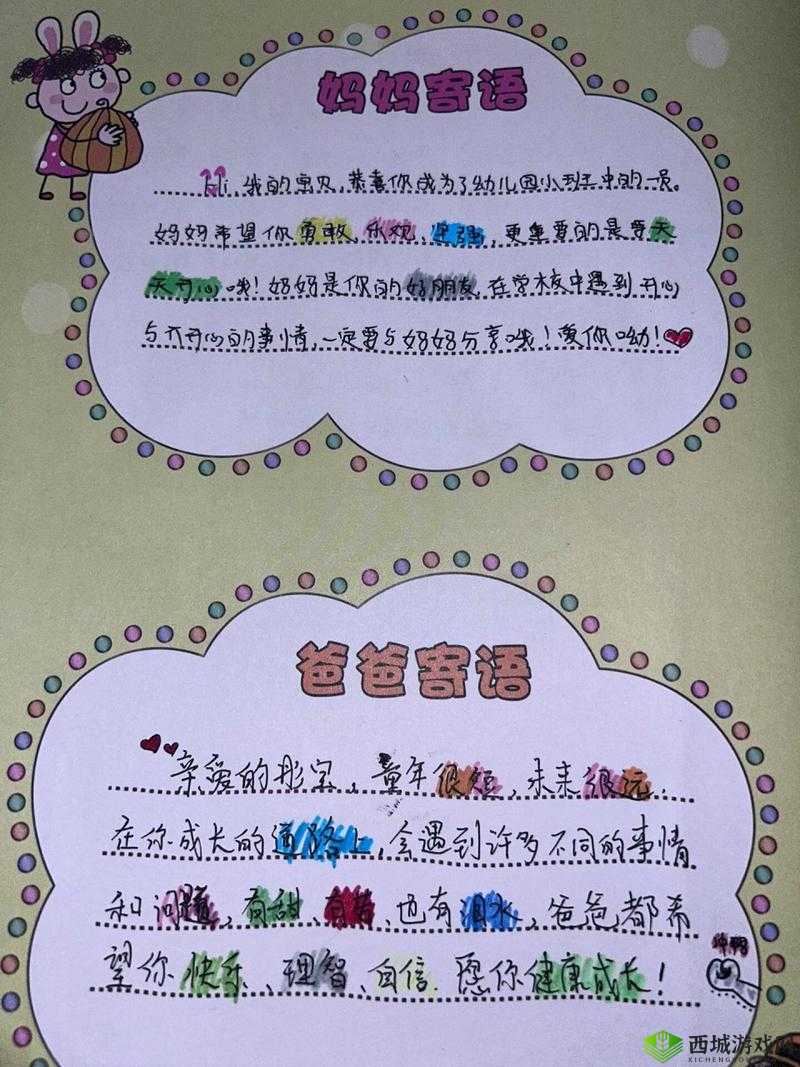 妈妈寄语
Hi, 我的宝贝,恭喜你成为了幼儿园小班中的一员。
妈妈希望你勇敢,乐观,坚强,更重要的是要天
天开心哦!妈妈是你的好朋友,在学校中遇到开心
与不开心的事情,一定要与妈妈分享哦!爱你呦!
爸爸寄语
亲爱的彤宝,童年很短,未来很远.
在你成长的道路上,会遇到许多不同的事情
和问题,有甜、有苦、也有泪水,爸爸都希
望你快乐、理智、自信.愿你健康成长!
西城游戏网